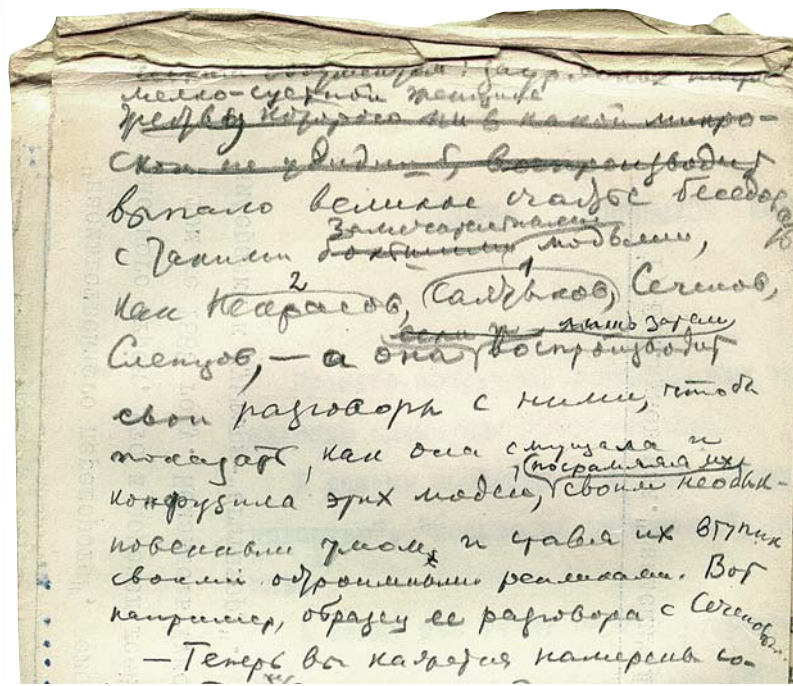 мелко-суетной женщине
которого ни в какой микро-
скоп не увидишь, воспроизводит
выпало великое счастье беседовать
замечательными
с такими людьми,
2 1
как Некрасов, Салтыков, Сеченов,
лишь затем
Слепцов, — а она воспроизводит
свои разговоры с ними, чтобы
показать, как она смущала и
посрамляя их
конфузила этих людей, своим необык-
новенным умом, и ставя их втупик
своими остроумными репликами. Вот
например, образец ее разговора с Сеченовым.
— Теперь вы кажется намерены со-